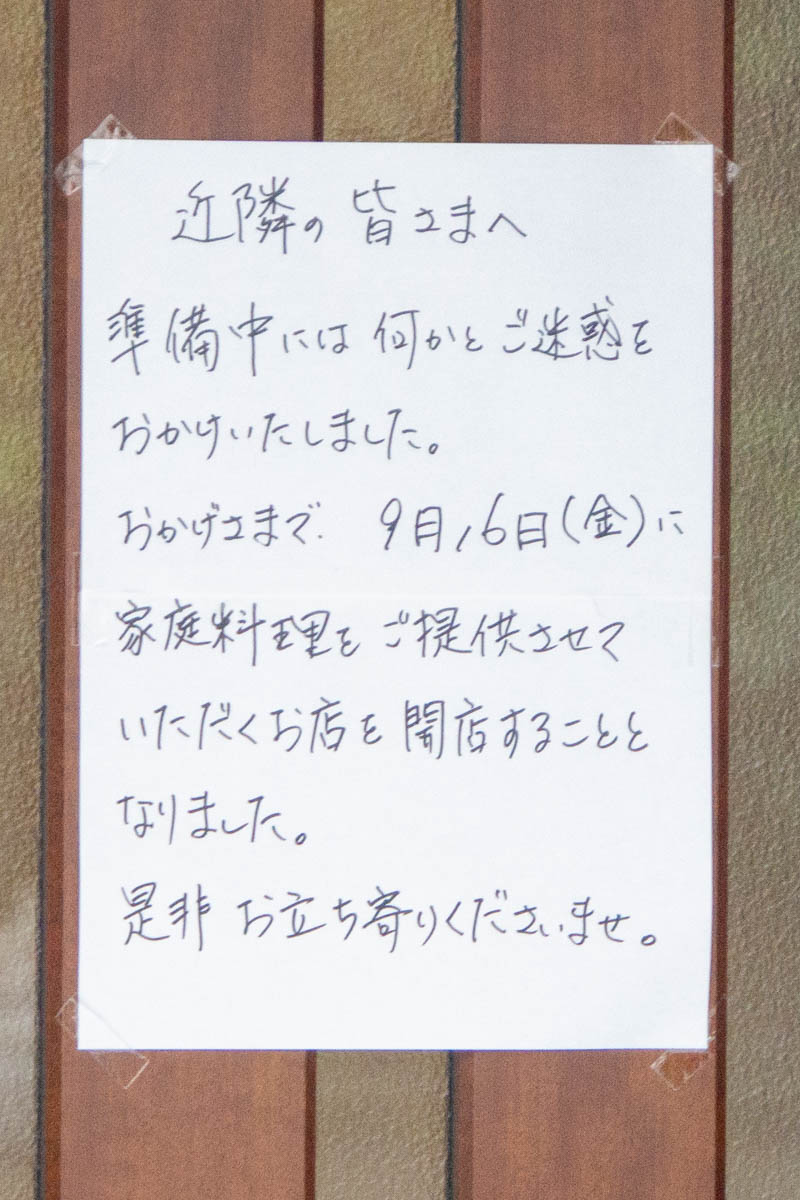 近隣の皆さまへ
準備中には何かとご迷惑を
おかけいたしました。
おかげさまで、9月16日(金)に
家庭料理をご提供させて
いただくお店を開店することと
なりました。
是非お立ち寄りくださいませ。